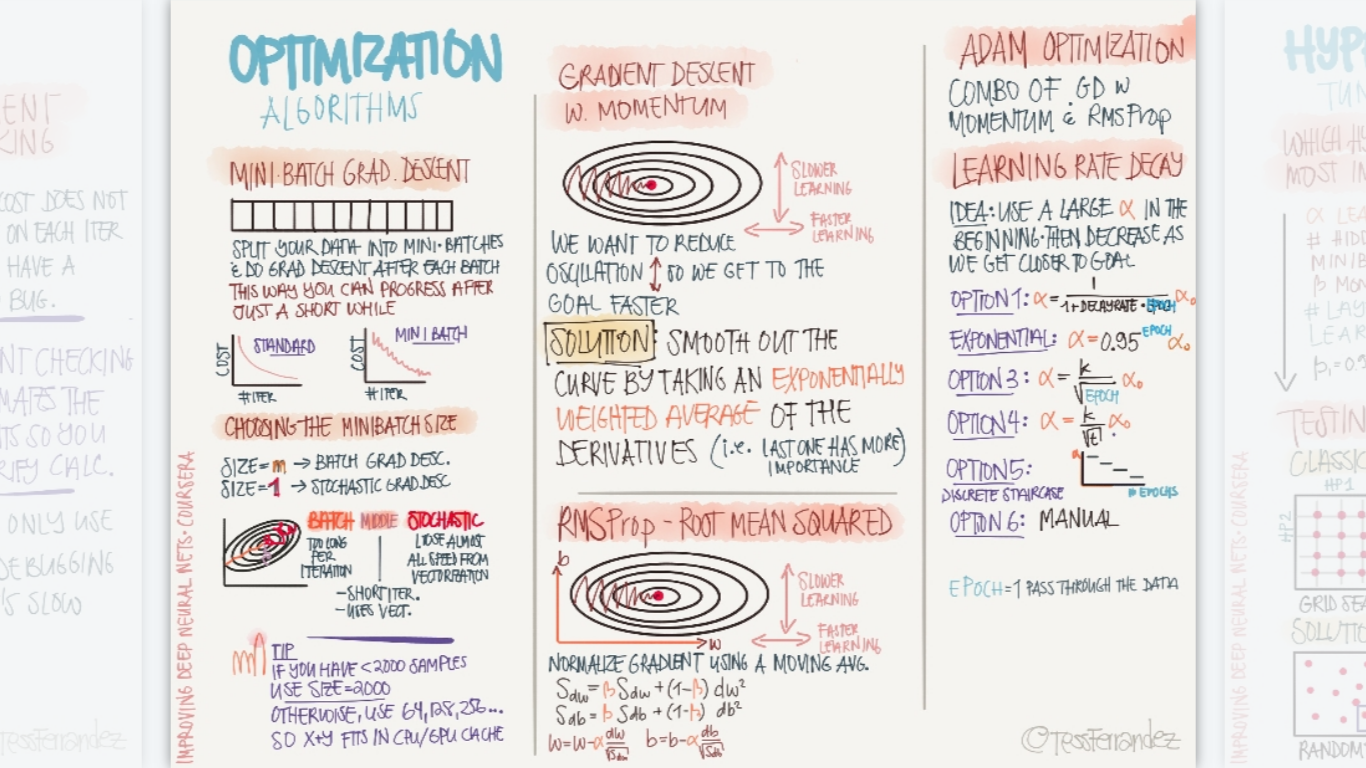 ENT
KING
COST DOES NOT
ON EACH ITER
HAVE A
BUG.
NT CHECKING
MATES THE
TS SO YOU
RIFY CALC.
ONLY USE
DEBUGGING
'S SLOW
TessFerrandez
IMPROVING DEEP NEURAL NETS · COURSERA
OPTIMIZATION
ALGORITHMS
MINI-BATCH GRAD. DESCENT
SPLIT YOUR DATA INTO MINI-BATCHES
& DO GRAD DESCENT AFTER EACH BATCH
THIS WAY YOU CAN PROGRESS AFTER
JUST A SHORT WHILE
COST STANDARD
# ITER
COST MINI BATCH
# ITER
CHOOSING THE MINIBATCH SIZE
SIZE=m → BATCH GRAD DESC.
SIZE=1 → STOCHASTIC GRAD DESC
BATCH MIDDLE STOCHASTIC
TOO LONG
PER
ITERATION
LOOSE ALMOST
ALL SPEED FROM
VECTORIZATION
-SHORT ITER.
-USES VECT.
TIP
IF YOU HAVE <2000 SAMPLES
USE SIZE=2000
OTHERWISE, USE 64,128,256...
SO X+Y FITS IN CPU/GPU CACHE
GRADIENT DESCENT
W. MOMENTUM
SLOWER
LEARNING
FASTER
LEARNING
WE WANT TO REDUCE
OSCILLATION ↕ SO WE GET TO THE
GOAL FASTER
SOLUTION: SMOOTH OUT THE
CURVE BY TAKING AN EXPONENTIALLY
WEIGHTED AVERAGE OF THE
DERIVATIVES (i.e. LAST ONE HAS MORE)
IMPORTANCE
RMSProp - ROOT MEAN SQUARED
b
SLOWER
LEARNING
FASTER
LEARNING
W
NORMALIZE GRADIENT USING A MOVING AVG.
Sdw = β Sdw + (1-β) dw²
Sdb = β Sdb + (1-β) db²
W=W-α dw/√Sdw b=b-α db/√Sdb
ADAM OPTIMIZATION
COMBO OF GD W
MOMENTUM & RMSProp
LEARNING RATE DECAY
IDEA: USE A LARGE α IN THE
BEGINNING. THEN DECREASE AS
WE GET CLOSER TO GOAL
OPTION 1: α = 1/(1+DECAYRATE·EPOCH) α₀
EXPONENTIAL: α=0.95^EPOCH α₀
OPTION 3: α = k/√EPOCH α₀
OPTION 4: α = k/√t α₀.
OPTION 5:
DISCRETE STAIRCASE
α
EPOCHS
OPTION 6: MANUAL
EPOCH = 1 PASS THROUGH THE DATA
©TessFerrandez
HYP
TUN
WHICH H
MOST IM
α LEA
# HIDD
MINIB
β MON
# LAY
LEAR
β₁=0.9
TESTIN
CLASSIC
HP1
HP2
GRID SEA
SOLUTIO
RANDOM
IMPROVING DEEP NEURAL NETS · COURSERA